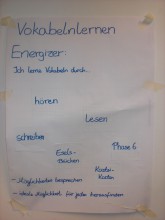 Vokabellernen
Energizer:
Ich lerne Vokabeln durch...
hören
Lesen
schreiben
Phase 6
Esels-
brücken
Kartei-
Karten
- Möglichkeiten besprechen
- ideale Möglichkeit für jeden herausfinden